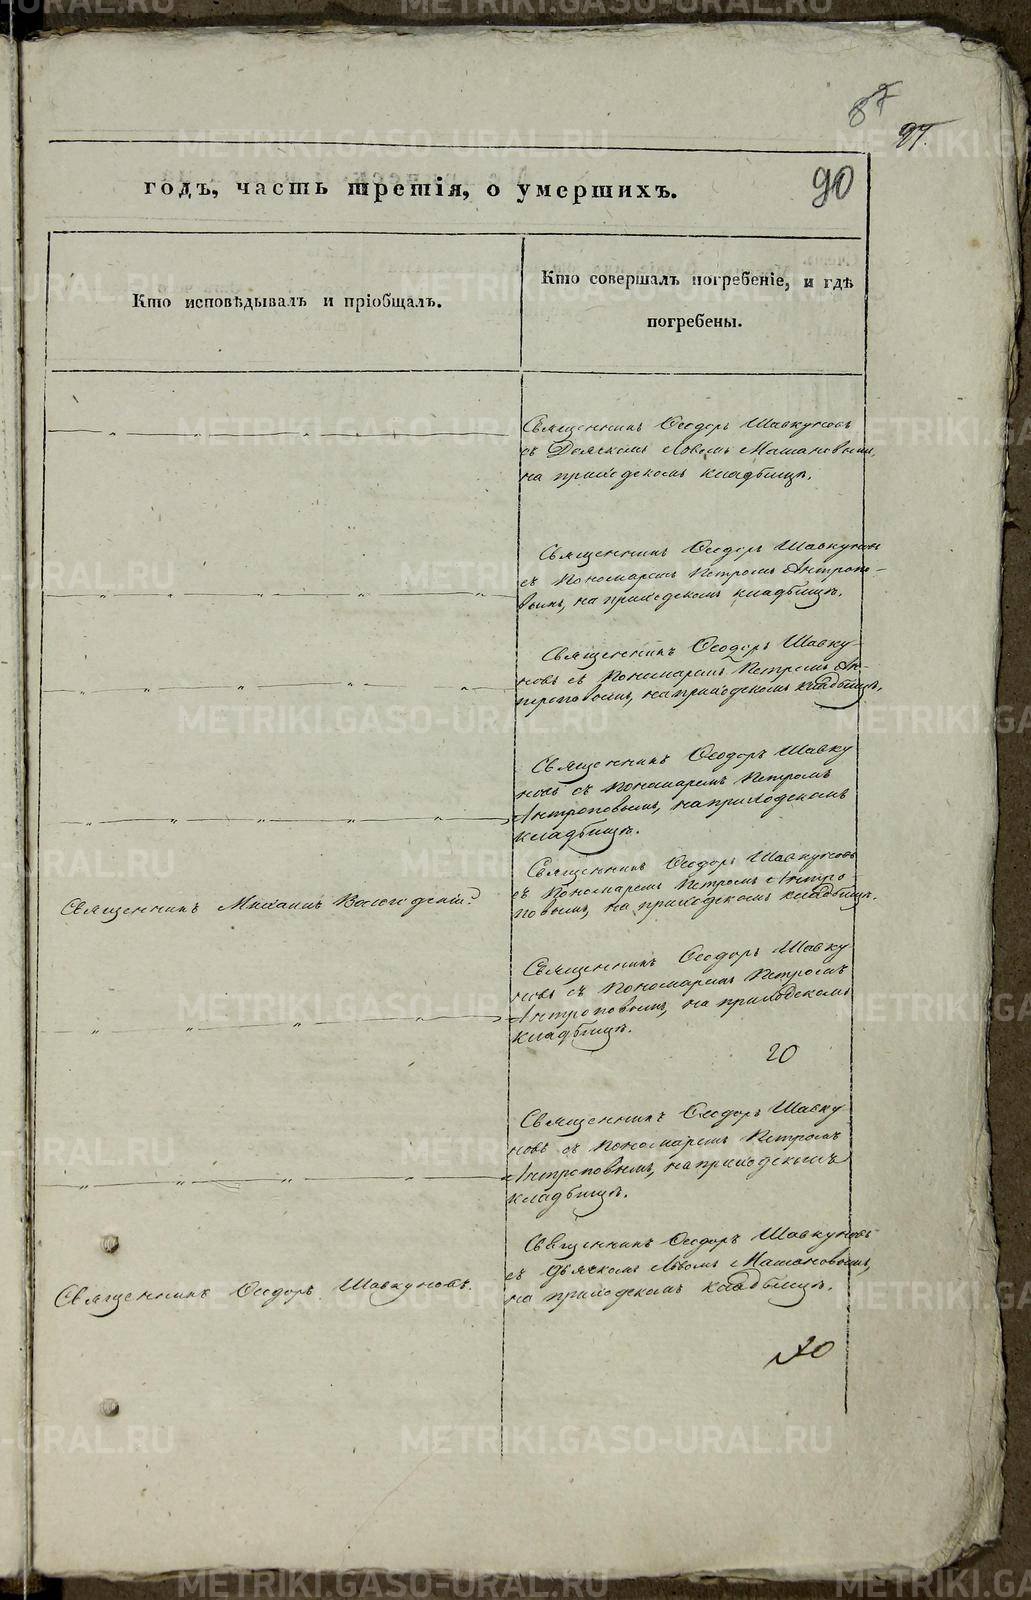 87
97.
годъ, часть третія, о умершихъ.
90
Кто исповѣдывалъ и пріобщалъ.
Кто совершалъ погребеніе, и гдѣ
погребены.
Священникъ Ѳеодоръ Шавкуновъ
съ Дьячкомъ Львомъ
на приходскомъ кладбищѣ.
Священникъ Ѳеодоръ Шавкуновъ
съ Пономаремъ Петромъ Антропо-
вымъ, на приходскомъ кладбищѣ.
Священникъ Ѳеодоръ Шавку
новъ съ Пономаремъ Петромъ Ан-
троповымъ, на приходскомъ кладбищѣ.
Священникъ Ѳеодоръ Шавку
новъ съ Пономаремъ Петромъ
Антроповымъ, на приходскомъ
кладбищѣ.
Священникъ Михаилъ
Священникъ Ѳеодоръ Шавкуновъ
съ Пономаремъ Петромъ Антро-
повымъ, на приходскомъ кладбищѣ.
Священникъ Ѳеодоръ Шавку
новъ съ Пономаремъ Петромъ
Антроповымъ, на приходскомъ
кладбищѣ.
20
Священникъ Ѳеодоръ Шавку
новъ съ Пономаремъ Петромъ
Антроповымъ, на приходскомъ
кладбищѣ.
Священникъ Ѳеодоръ Шавкуновъ.
Священникъ Ѳеодоръ Шавкуновъ
съ Дьячкомъ Львомъ
на приходскомъ кладбищѣ.
METRIKI.GASO-URAL.RU